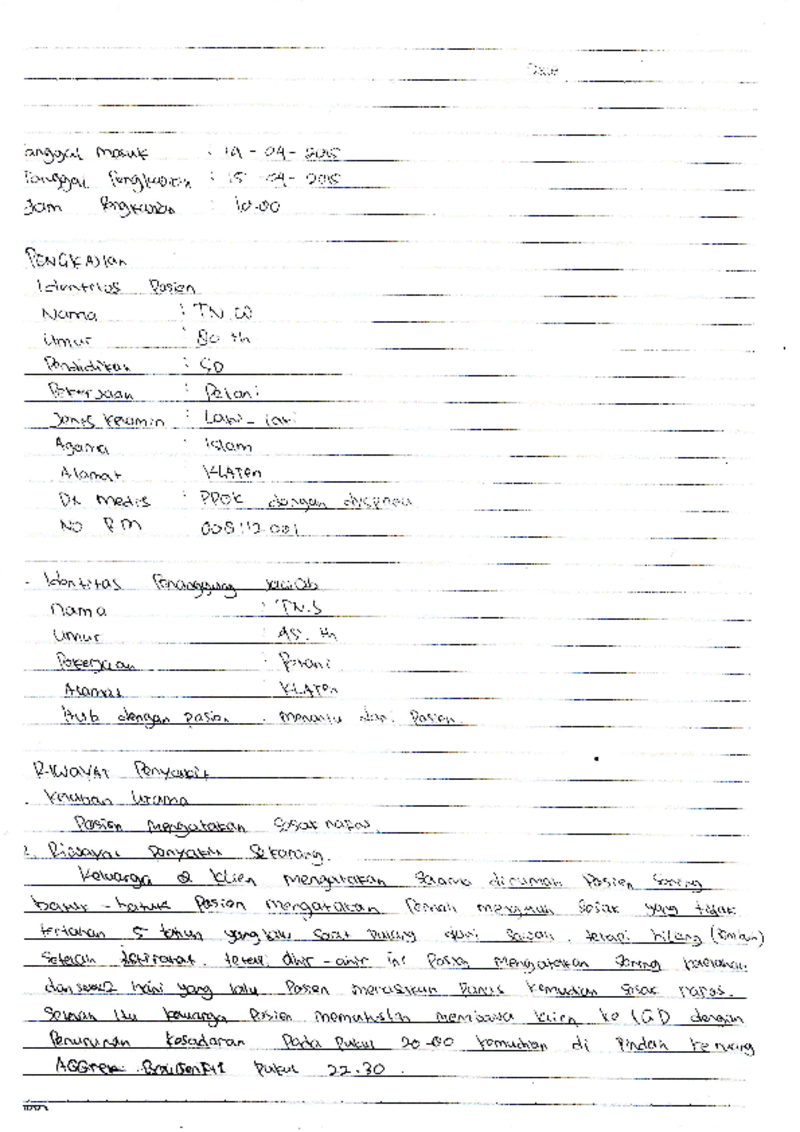 Date
anggal masuk : 14 - 04 - 2015
Tanggal Pengkajian : 15 - 04 - 2015
Jam Pengkajian : 10.00
PENGKAJIAN
Identitas Pasien
Nama : TN. W
Umur : 80 th
Pendidikan : SD
Pekerjaan : Petani
Jenis Kelamin : Laki - laki
Agama : Islam
Alamat : KLATEN
Dx Medis : PPOK dengan dispnea
NO RM
- Identitas Penanggung jawab
Nama : TN. S
Umur : 45 th
Pekerjaan : Petani
Alamat : KLATEN
Hub dengan pasien : menantu dari Pasien.
RIWAYAT Penyakit
Keluhan Utama
Pasien mengatakan Sesak nafas
2. Riwayat Penyakit Sekarang.
Keluarga & Klien mengatakan Selama dirumah Pasien Sering
batuk - batuk Pasien mengatakan Pernah mengalami Sesak yang tidak
tertahan 5 tahun yang lalu Saat pulang dari Sawah. tetapi hilang (sembuh)
Setelah Istirahat. tetapi akhir - akhir ini Pasien mengatakan Sering
dan hari yang lalu Pasien merasakan Panas kemudian Sesak napas.
Setelah itu keluarga Pasien memutuskan membawa klien ke IGD dengan
Penurunan Kesadaran Pada Pukul 20.00 kemudian di Pindah ke ruang
AGGrek pukul 22.30.